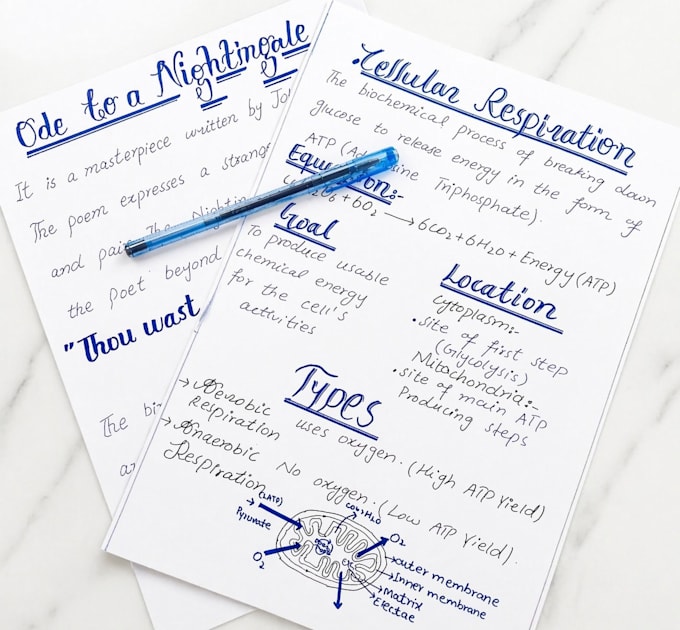 Ode to a Nightingale
It is a masterpiece written by
The poem expresses a strange
and pain. The
the Poet beyond
"Thou wast
The
Cellular Respiration
The biochemical process of breaking down
glucose to release energy in the form of
ATP ( Triphosphate).
Equation:-
+6O2 → 6CO2+6H2O+Energy (ATP)
Goal
To produce usable
chemical energy
for the cell's
activities
Location
Cytoplasm:-
• site of first step
(Glycolysis)
Mitochondria:-
• site of main ATP
Producing steps
Types
→ Aerobic
Respiration uses oxygen. (High ATP Yield)
→ Anaerobic
Respiration No oxygen. (Low ATP Yield).
(ATP)
Pyruvate
O2
O2
outer membrane
Inner membrane
Matrix